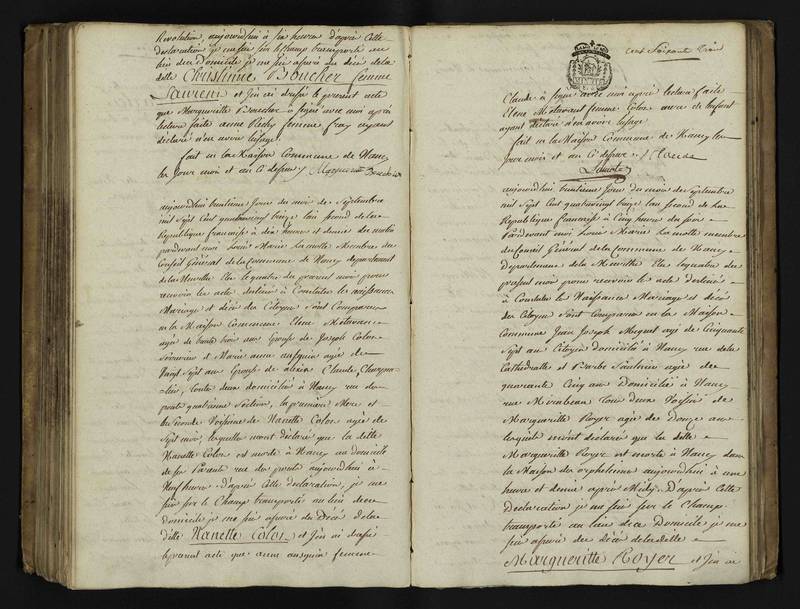 Revolution, aujourdhui à six heures d'après cette
declaration je me suis sur le champ transporté au
lieu du Domicile je me suis assuré du décé de la
ditte Christinne Boucher femme
Laurent et j'en ai dressé le present acte
que Margueritte Boucher a signé avec moi après
lecture faite anne Richy femme ayant
déclaré n'en avoir l'usage.
fait en la Maison Commune de Nancy
les Jour mois et an Ci dessus / Margueritte Boucher
aujourdhui huitieme Jour du mois de Septembre
mil Sept Cent quatrevingt treize l'an second de la
Republique françoise à dix heures et demie du matin
pardevant moi Louis Marie Lamotte Membre du
Conseil Général de la Commune de Nancy departement
de la Meurthe Elu le quatre du present mois pour
recevoir les actes destinés à Constater les naissances
Mariage et décé des Citoyens Sont Comparues
en la Maison Commune Elene Motavant
agée de trente trois ans Epouse de Joseph Colos
et Marie anne ausquin agée de
Vingt Sept ans Epouse de Claude
toutes deux domiciliées à Nancy rue du
quatrieme Section, la premiere Mere et
la Seconde Voisinne de Nanette Colos agée de
Sept mois, lesquelles m'ont déclaré que la ditte
Nanette Colos est morte à Nancy au domicile
de ses Parents rue du aujourdhui à
Neuf heures. d'après Cette déclaration, je me
suis sur le Champ transporté au lieu du
domicile je me suis assuré du Décé de la
ditte Nanette Colos et j'en ai dressé
le present acte que anne ausquin femme
cent Soixante trois
Claude à signé avec moi après lecture faite
Elene Motavant femme Colos mere de l'enfant
ayant déclaré n'en avoir l'usage
fait en la Maison Commune de Nancy les
Jour mois et an Ci dessus / Claude
Lamotte
aujourdhui huitieme Jour du mois de Septembre
mil Sept Cent quatrevingt treize l'an second de la
Republique françoise à Cinq heures du soir
Pardevant moi Louis Marie Lamotte membre
du Conseil Général de la Commune de Nancy
Departement de la Meurthe Elu le quatre du
present mois pour recevoir les actes destinés
à Constater les Naissances Mariage et décé
des Citoyens Sont Comparus en la Maison
Commune Jean Joseph Muguet agé de Cinquante
Sept ans Citoyen domicilié à Nancy rue de la
Cathedralle et Barbe agée de
quarante Cinq ans Domiciliée à Nancy
rue Mirabeau tous deux Voisins de
Margueritte Royer agée de Douze ans
lesquels m'ont déclaré que la ditte
Margueritte Royer est morte à Nancy dans
la Maison des orphelinnes aujourdhui à une
heure et demie après Midy. D'après Cette
Declaration je me suis sur le Champ
transporté au lieu du Domicile je me
suis assuré du décé de la ditte
Margueritte Royer et j'en ai